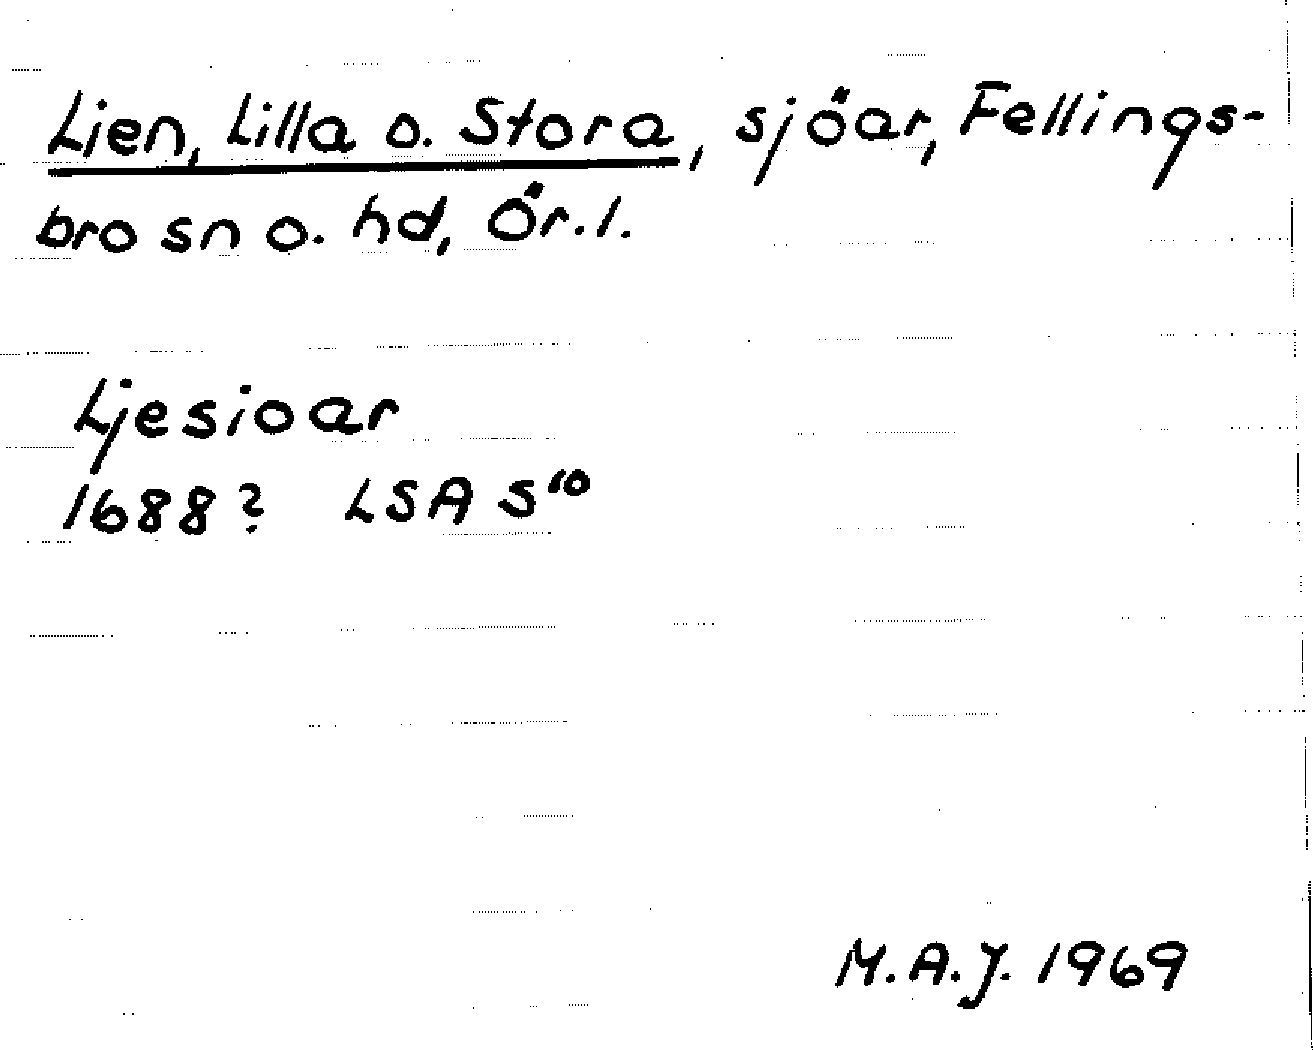 Lien, Lilla o. Stora, sjöar, Fellings-
bro sn o. hd, Ör. l.
Ljesioar
1688? LSA S¹⁰
M.A.J. 1969